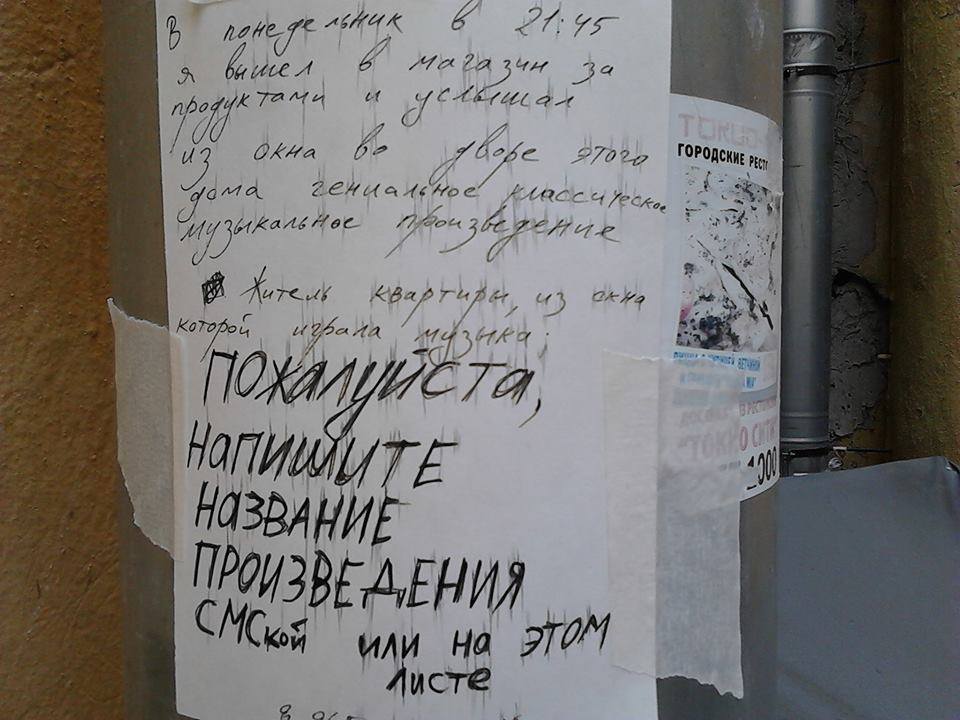 В понедельник в 21:45
я вышел в магазин за
продуктами и услышал
из окна во дворе этого
дома гениальное классическое
музыкальное произведение
Житель квартиры, из окна
которой играла музыка,
ПОЖАЛУЙСТА,
НАПИШИТЕ
НАЗВАНИЕ
ПРОИЗВЕДЕНИЯ
СМСкой или на ЭТОМ
листе
ГОРОДСКИЕ РЕСТ
ВЕТЧИНОЙ
"ТОКИО СИТИ
1000